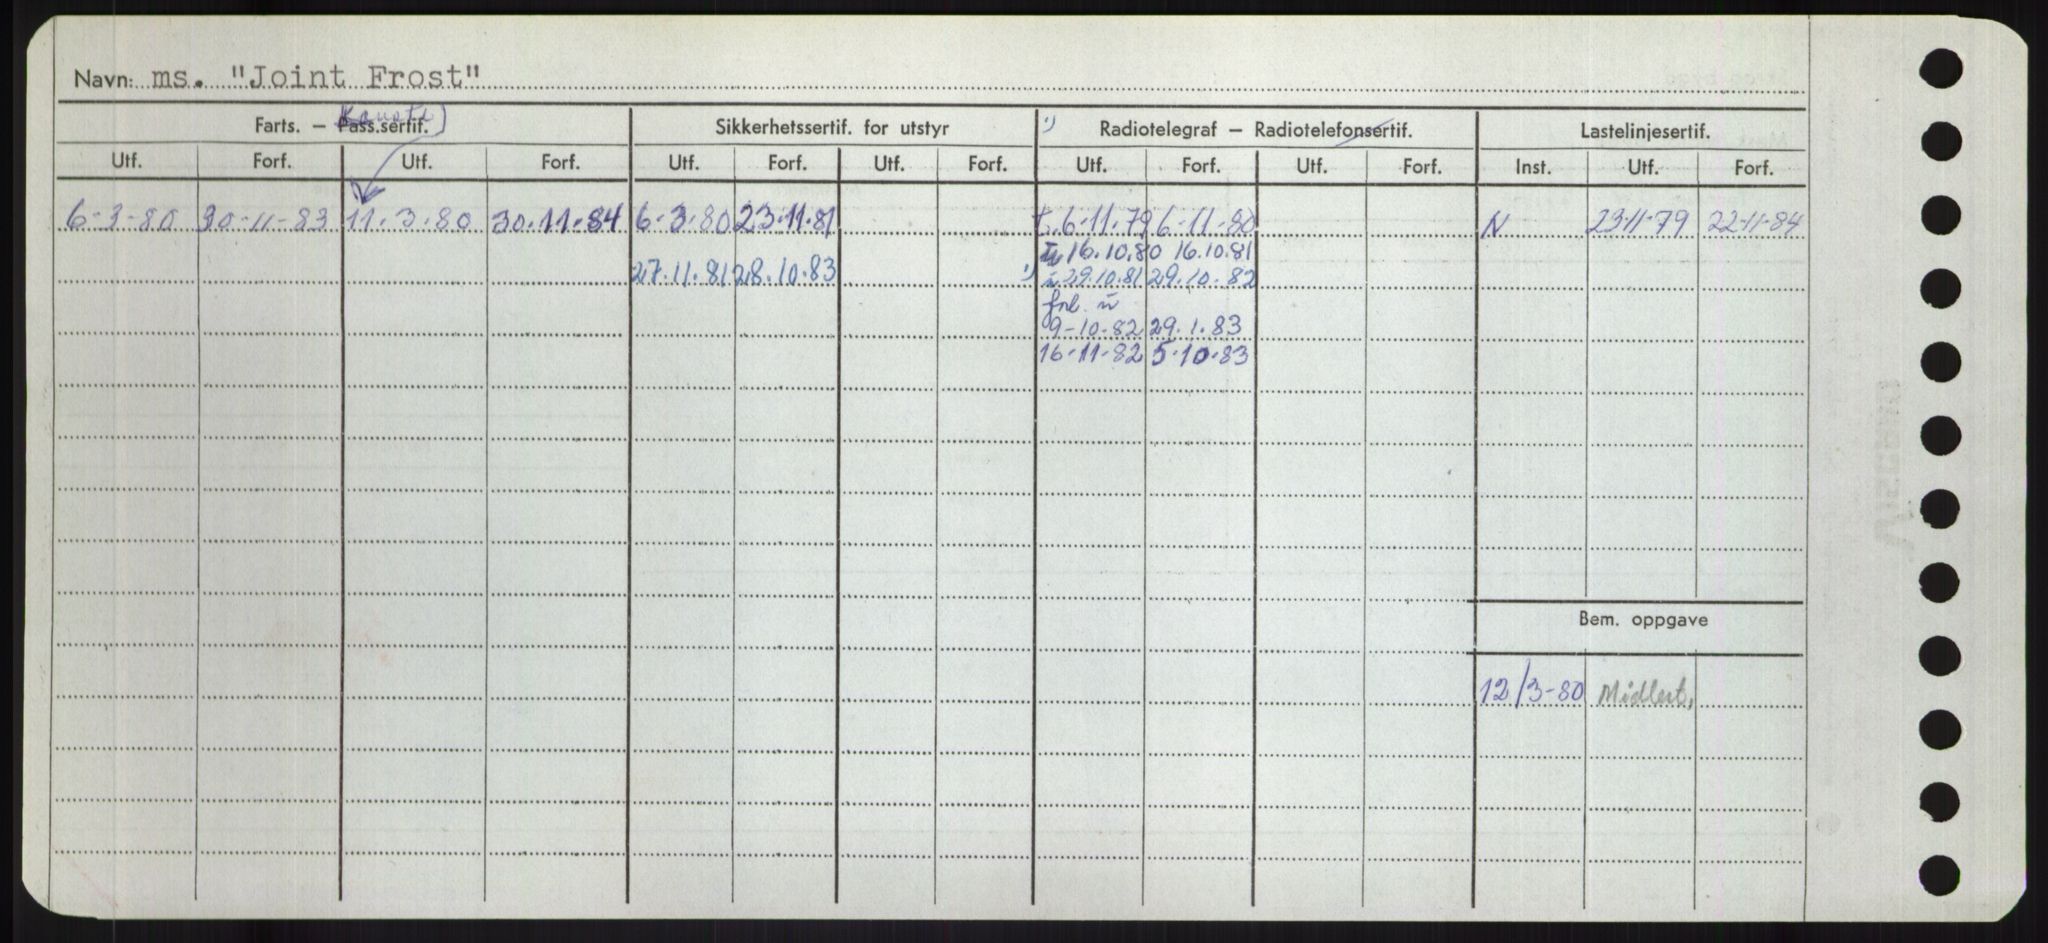 Navn: ms. "Joint Frost"
Farts. — Pass.sertif. Sikkerhetssertif. for utstyr 1) Radiotelegraf — Radiotelefonsertif. Lastelinjesertif.
Utf. Forf. Utf. Forf. Utf. Forf. Utf. Forf. Utf. Forf. Utf. Forf. Inst. Utf. Forf.
6-3-80 30-11-83 11.3.80 30.11.84 6-3-80 23.11.81 6.11.79 6-11-80 N 23-11-79 22-11-84
16.10.80 16.10.81
27.11.81 28.10.83 1) 29.10.81 29.10.82
forl.
9-10-82 29.1.83
16-11-82 5-10-83
Bem. oppgave
12/3-80 Midlert.